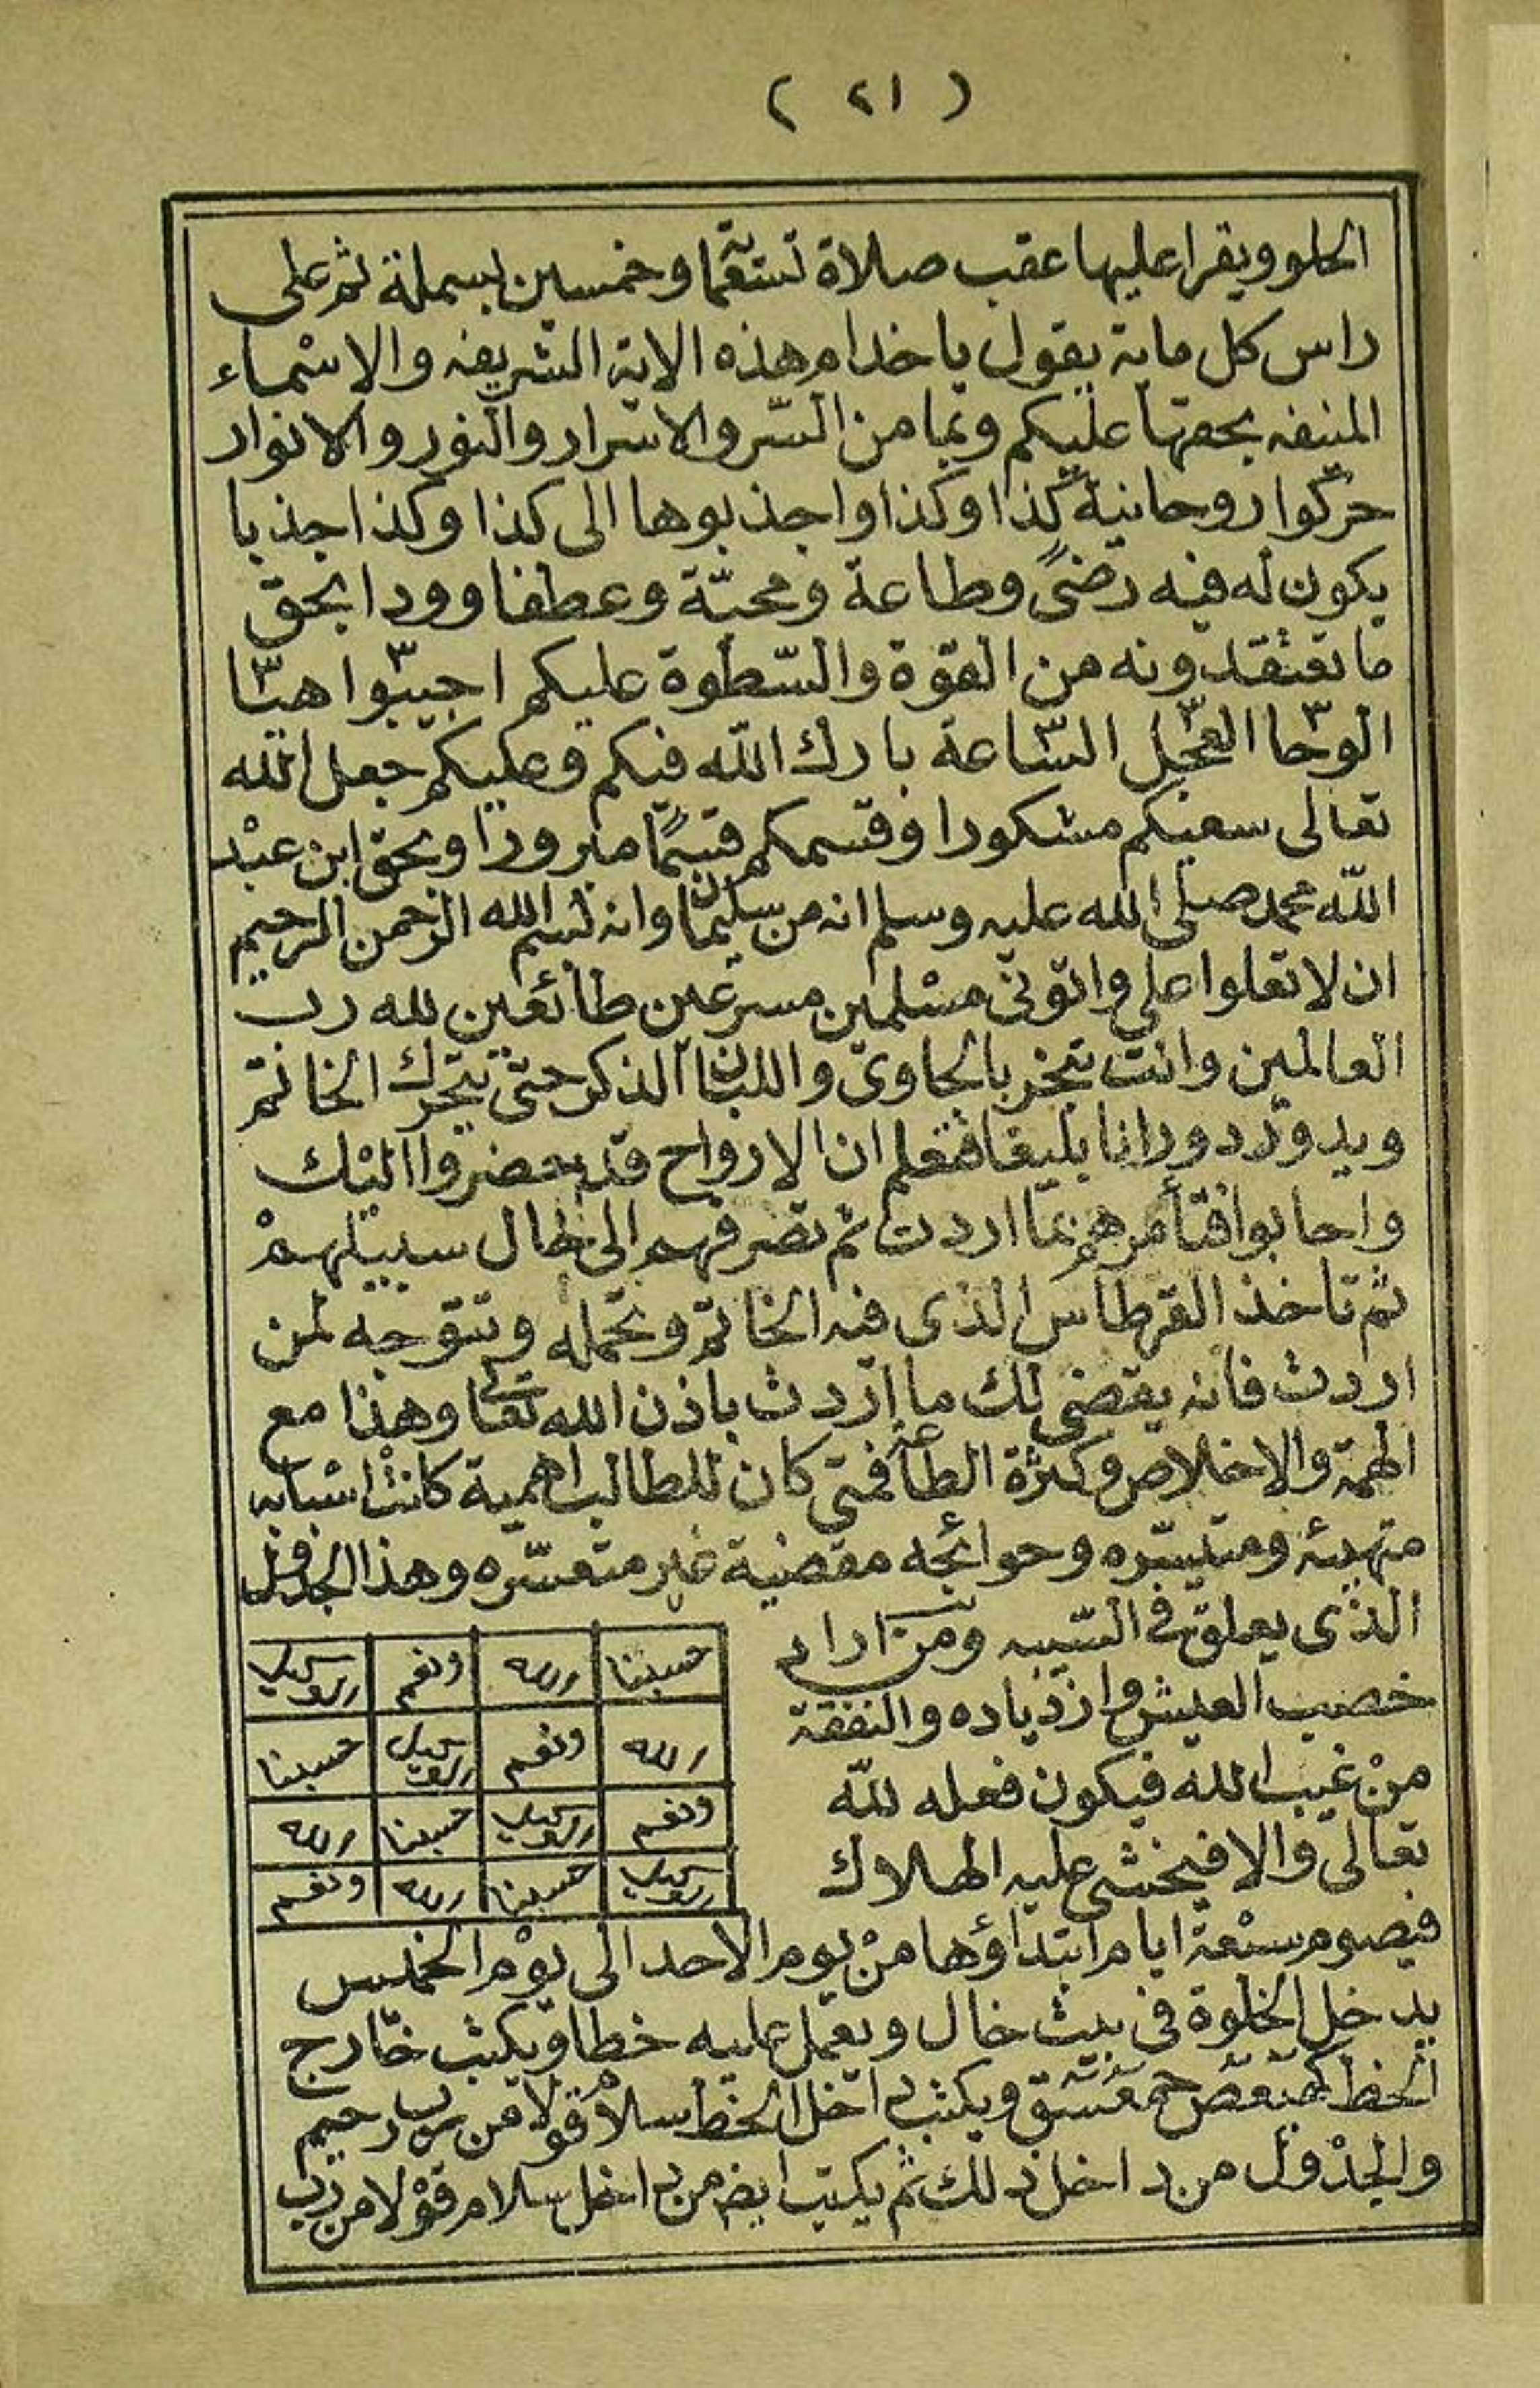 ( ٢١ )
الحلو ويقرا عليها عقب صلاة تستعمائة وخمسين بسملة ثم على
راس كل ماىة يقول يا خدام هذه الاية الشريفه والاسماء
المنيفه بحقها عليكم وبما من السر والاسرار والنور والانوار
حركوا روحانية كذا وكذا واجذبوها الى كذا وكذا جذبا
يكون له فيه رضىً وطاعة ومحبّة وعطفا وودا بحق
ما تعتقدونه من القوّة والسّطوة عليكم اجيبوا ٣ هيّا ٣
الوحا ٣ العجل ٣ السّاعة ٣ بارك الله فيكم وعليكم جعل الله
تعالى سعيكم مشكورا وقسمكم قسمًا مبرورا وبحق ابن عبد
الله محمد صلى الله عليه وسلم انه من سليمان وانه بسم الله الرحمن الرحيم
ان لا تعلوا على واتوني مسلمين مسرعين طائعين لله رب
العالمين وانت تبخر بالجاوي واللبان الذكر حتى يتحرك الخاتم
ويدور دورانا بليغا فتعلم ان الارواح قد حضروا اليك
واجابوا فتأمرهم بما اردت ثم تصرفهم الى حال سبيلهم
ثم تاخذ القرطاس الذى فيه الخاتم وتحمله وتتوجه لمن
اردت فانه يقضى لك ما اردت باذن الله تعالى وهذا مع
الهمة والاخلاص وكثرة الطاعة فمتى كان للطالب اهمية كانت اشيايه
متهيئه ومتيسّره وحوائجه مقضية غير متعسّره وهذا الجدول
الذى يعلق في السّيبه ومن اراد
خصيب العيش وازدياده والنفقة
من غيب الله فيكون فعله لله
تعالى والا فيخشى عليه الهلاك
حسبنا الله ونعم الوكيل
الله ونعم الوكيل حسبنا
ونعم الوكيل حسبنا الله
الوكيل حسبنا الله ونعم
فيصوم سبعة ايام ابتداؤها من يوم الاحد الى يوم الخميس
يدخل الخلوة في بيت خال ويعمل عليه خطا ويكتب خارج
الخط كهيعص حمعسق ويكتب داخل الخط سلام قولا من رب رحيم
والجدول من داخل ذلك ثم يكتب ايضا من داخل سلام قولا من رب